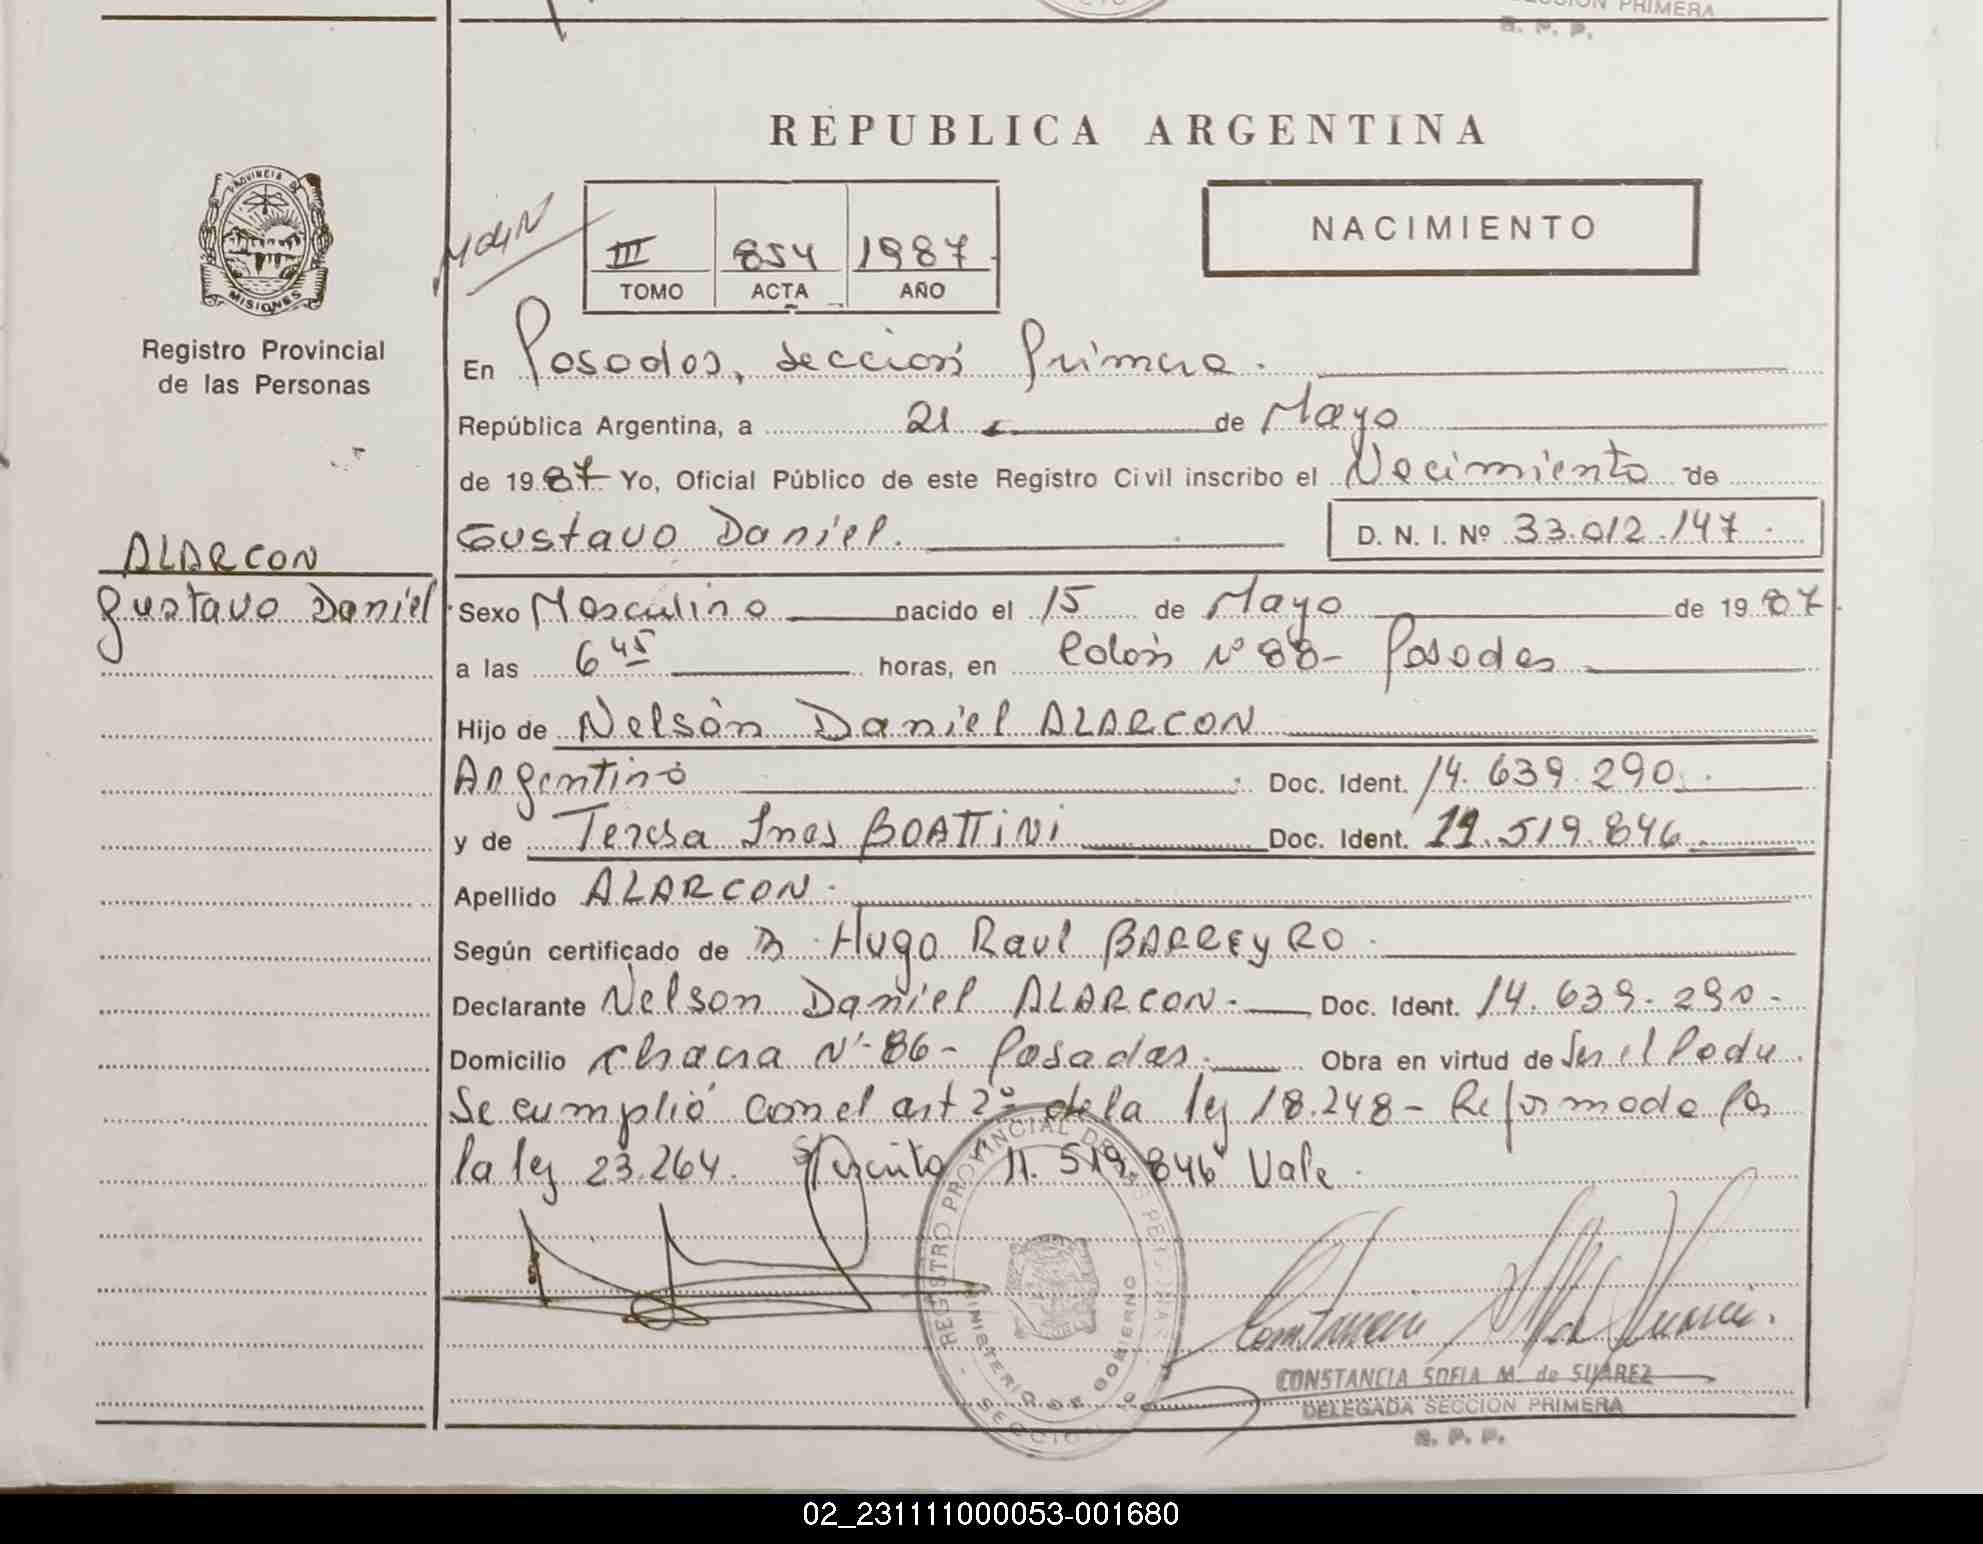 CCION PRIMERA
R. P. P.
REPUBLICA ARGENTINA
PROVINCIA DE
MISIONES
Registro Provincial
de las Personas
III 854 1987
TOMO ACTA AÑO
NACIMIENTO
En Posadas, Sección Primera.
República Argentina, a 21 de Mayo
de 1987 Yo, Oficial Público de este Registro Civil inscribo el Nacimiento de
Gustavo Daniel. D. N. I. Nº 33.012.147.
ALARCON
Gustavo Daniel
Sexo Masculino nacido el 15 de Mayo de 1987
a las 6 45 horas, en Colón Nº 88- Posadas
Hijo de Nelsón Daniel ALARCON
Argentino Doc. Ident. 14.639.290.
y de Teresa Ines BOATTINI Doc. Ident. 11.519.846
Apellido ALARCON.
Según certificado de Hugo Raul BARREYRO.
Declarante Nelson Daniel ALARCON. Doc. Ident. 14.639.290-
Domicilio Chacra Nº 86- Posadas. Obra en virtud de Ser el Padre.
Se cumplió con el art 2º de la ley 18.248- Reformado Por
la ley 23.264. S/Escrito "11.519.846" Vale.
REGISTRO PROVINCIAL DE LAS PERSONAS
MINISTERIO DE GOBIERNO
SECCION
CONSTANCIA SOFIA M. de SUAREZ
DELEGADA SECCION PRIMERA
R. P. P.
02_231111000053-001680